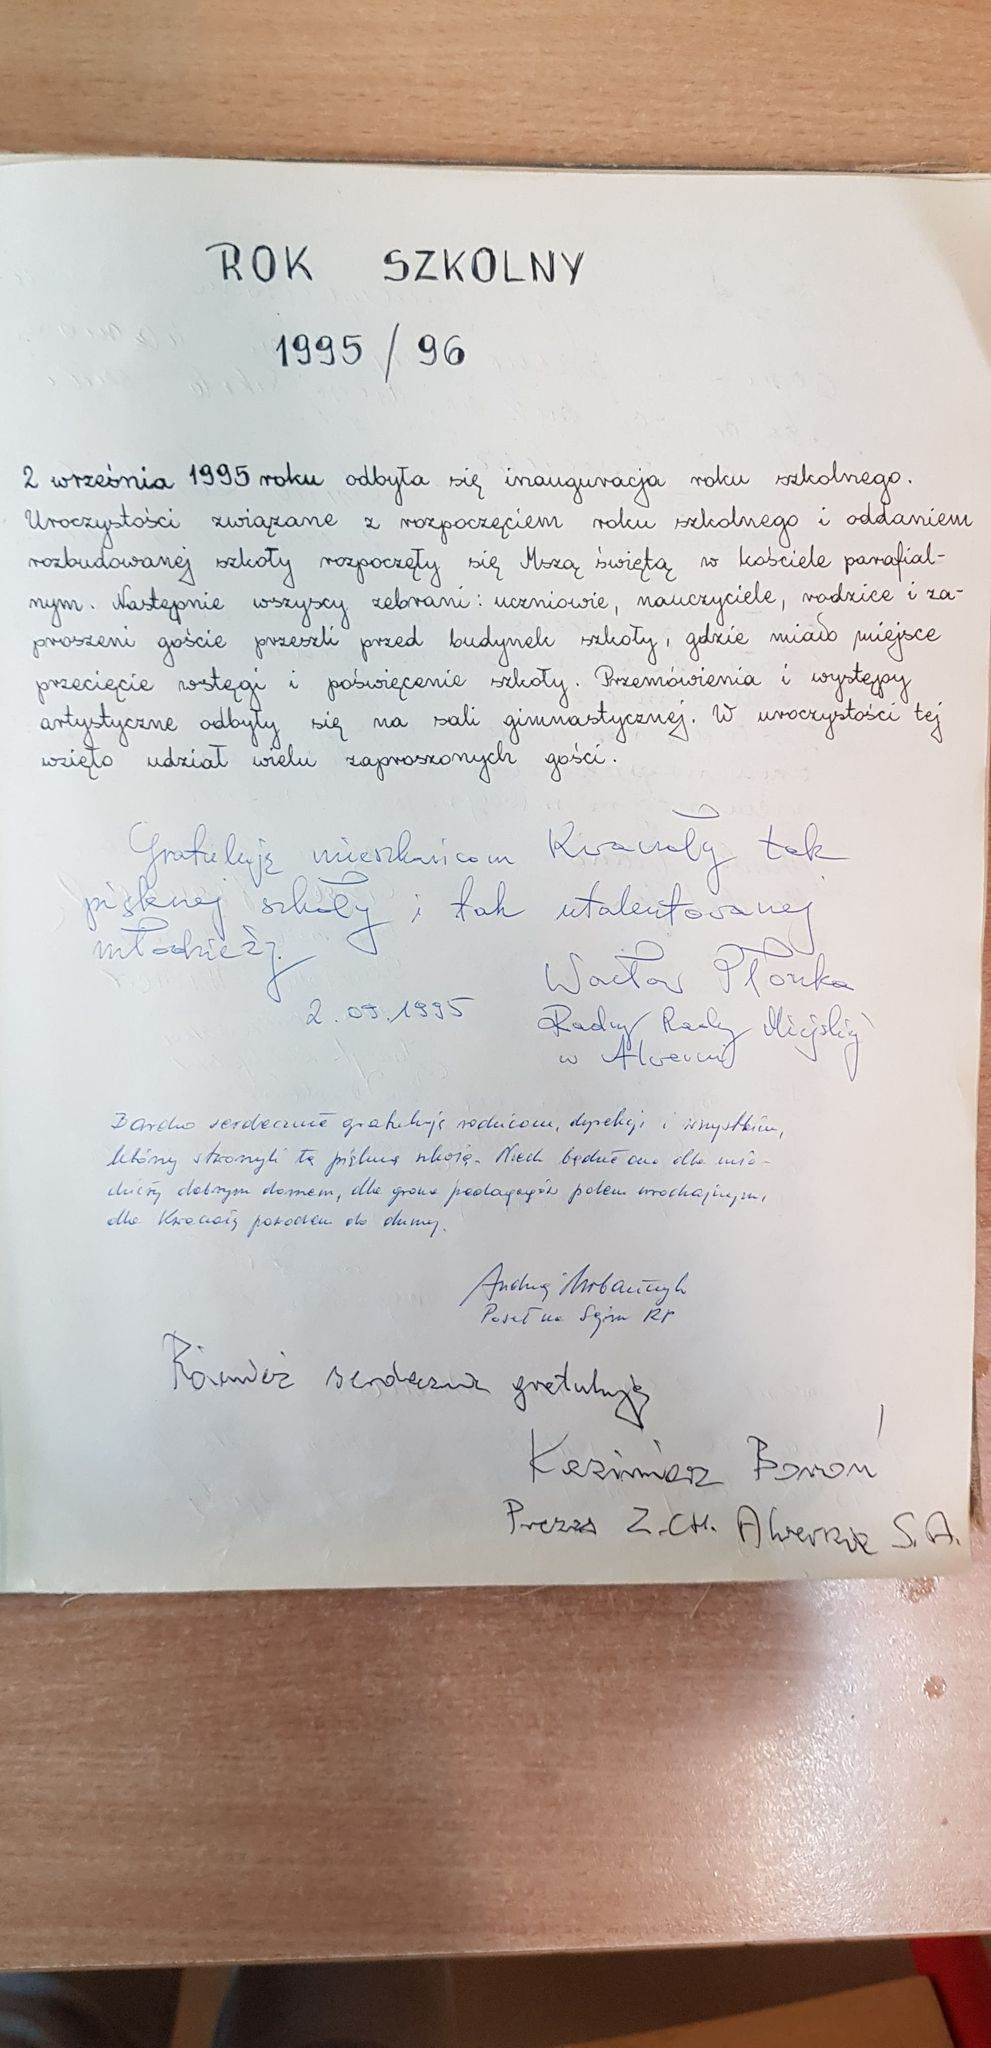 ROK SZKOLNY
1995 / 96
2 września 1995 roku odbyła się inauguracja roku szkolnego.
Uroczystości związane z rozpoczęciem roku szkolnego i oddaniem
rozbudowanej szkoły rozpoczęły się Mszą świętą w kościele parafial-
nym. Następnie wszyscy zebrani: uczniowie, nauczyciele, rodzice i za-
proszeni goście przeszli przed budynek szkoły, gdzie miało miejsce
przecięcie wstęgi i poświęcenie szkoły. Przemówienia i występy
artystyczne odbyły się na sali gimnastycznej. W uroczystości tej
wzięło udział wielu zaproszonych gości.
Gratuluję mieszkańcom Kwaczały tak
pięknej szkoły i tak utalentowanej
młodzieży.
2.09.1995
Wacław Płonka
Radny Rady Miejskiej
w Alwerni
Bardzo serdecznie gratuluję rodzicom, dyrekcji i wszystkim,
którzy stworzyli tę piękną szkołę. Niech będzie ona dla mło-
dzieży dobrym domem, dla grona pedagogów polem urodzajnym,
dla Kwaczały powodem do dumy.
Andrzej Urbańczyk
Poseł na Sejm RP
Również serdecznie gratuluję
Kazimierz Boroń
Prezes Z.CH. Alwernia S.A.